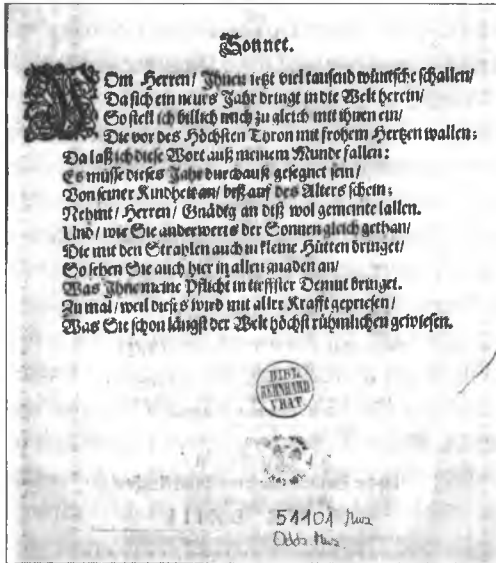 Sonnet.
Om Herren/ Ihnen jetzt viel tausend wüntsche schallen/
Da sich ein neues Jahr dringt in die Welt herein/
So stell ich billich mich zu gleich mit ihnen ein/
Die vor des Höchsten Thron mit frohem Hertzen wallen:
Da laß ich diese Wort auß meinem Munde fallen:
Es müsse dieses Jahr durchauß gesegnet sein/
Von seiner Kindheit an/ biß auf des Alters schein;
Nehmt/ Herren/ Gnädig an diß wol gemeinte lallen.
Und/ wie Sie anderwerts der Sonnen gleich gethan/
Die mit den Strahlen auch in kleine Hütten dringet/
So sehen Sie auch hier in allen gnaden an/
Was Ihne meine Pflicht in tieffster Demut bringet.
Zu mal/ weil dieses wird mit aller Krafft gepriesen/
Was Sie schon längst der Welt höchst rühmlichen gewiesen.
BIBL.
REHNHARD
VRAT.
54101 Mus